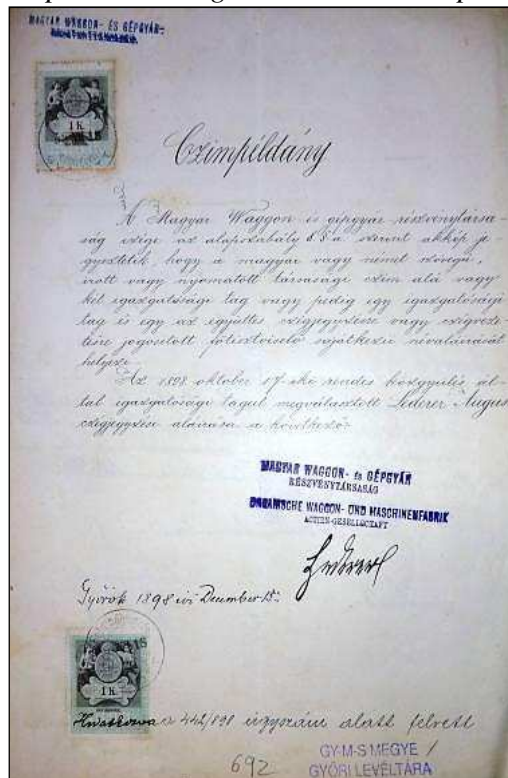 MAGYAR WAGGON- ÉS GÉPGYÁR-
1 K
Czimpéldány
A Magyar Waggon és gépgyár részvénytársa-
ság czége az alapszabály §-a szerint akkép je-
gyeztetik, hogy a magyar vagy német szövegű,
írott vagy nyomatott társasági czím alá vagy
két igazgatósági tag vagy pedig egy igazgatósági
tag és egy az együttes czégjegyzésre vagy czégveze-
tésre jogosított főtisztviselő sajátkezű névaláírását
helyezi.
Az 1898 oktober 17-iki rendes közgyűlés ál-
tal igazgatósági tagul megválasztott Lederer August
czégjegyzési aláírása a következő:
MAGYAR WAGGON- és GÉPGYÁR
RÉSZVÉNYTÁRSASÁG
UNGARISCHE WAGGON- UND MASCHINENFABRIK
ACTIEN-GESELLSCHAFT
Lederer
Győrök 1898 évi December 15.
1 K
a 442/898 ügyszám alatt felvett
692
GY-M-S MEGYE
GYŐRI LEVÉLTÁRA